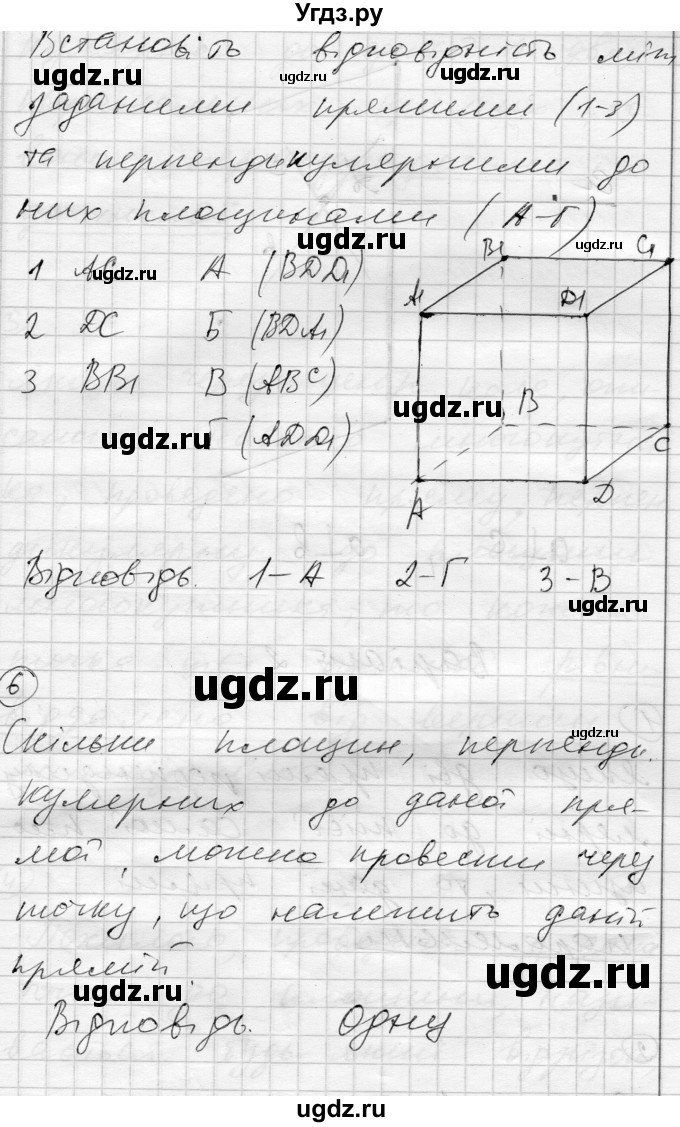 Угдз.ру
Встановіть відповідність між
заданими прямими (1-3)
та перпендикулярними до
них площинами (А-Г)
1 AC А (BDD1)
2 DC Б (BDA1)
3 BB1 В (ABC)
Г (ADD1)
B1 C1
A1 D1
B
C
A D
Відповідь. 1-А 2-Г 3-В
6
Скільки площин, перпенди-
кулярних до даної пря-
мої, можна провести через
точку, що належить даній
прямій
Відповідь. Одну
ugdz.ru
ugdz.ru
ugdz.ru
ugdz.ru
ugdz.ru
ugdz.ru
ugdz.ru
ugdz.ru
ugdz.ru
ugdz.ru
ugdz.ru
ugdz.ru
ugdz.ru
ugdz.ru